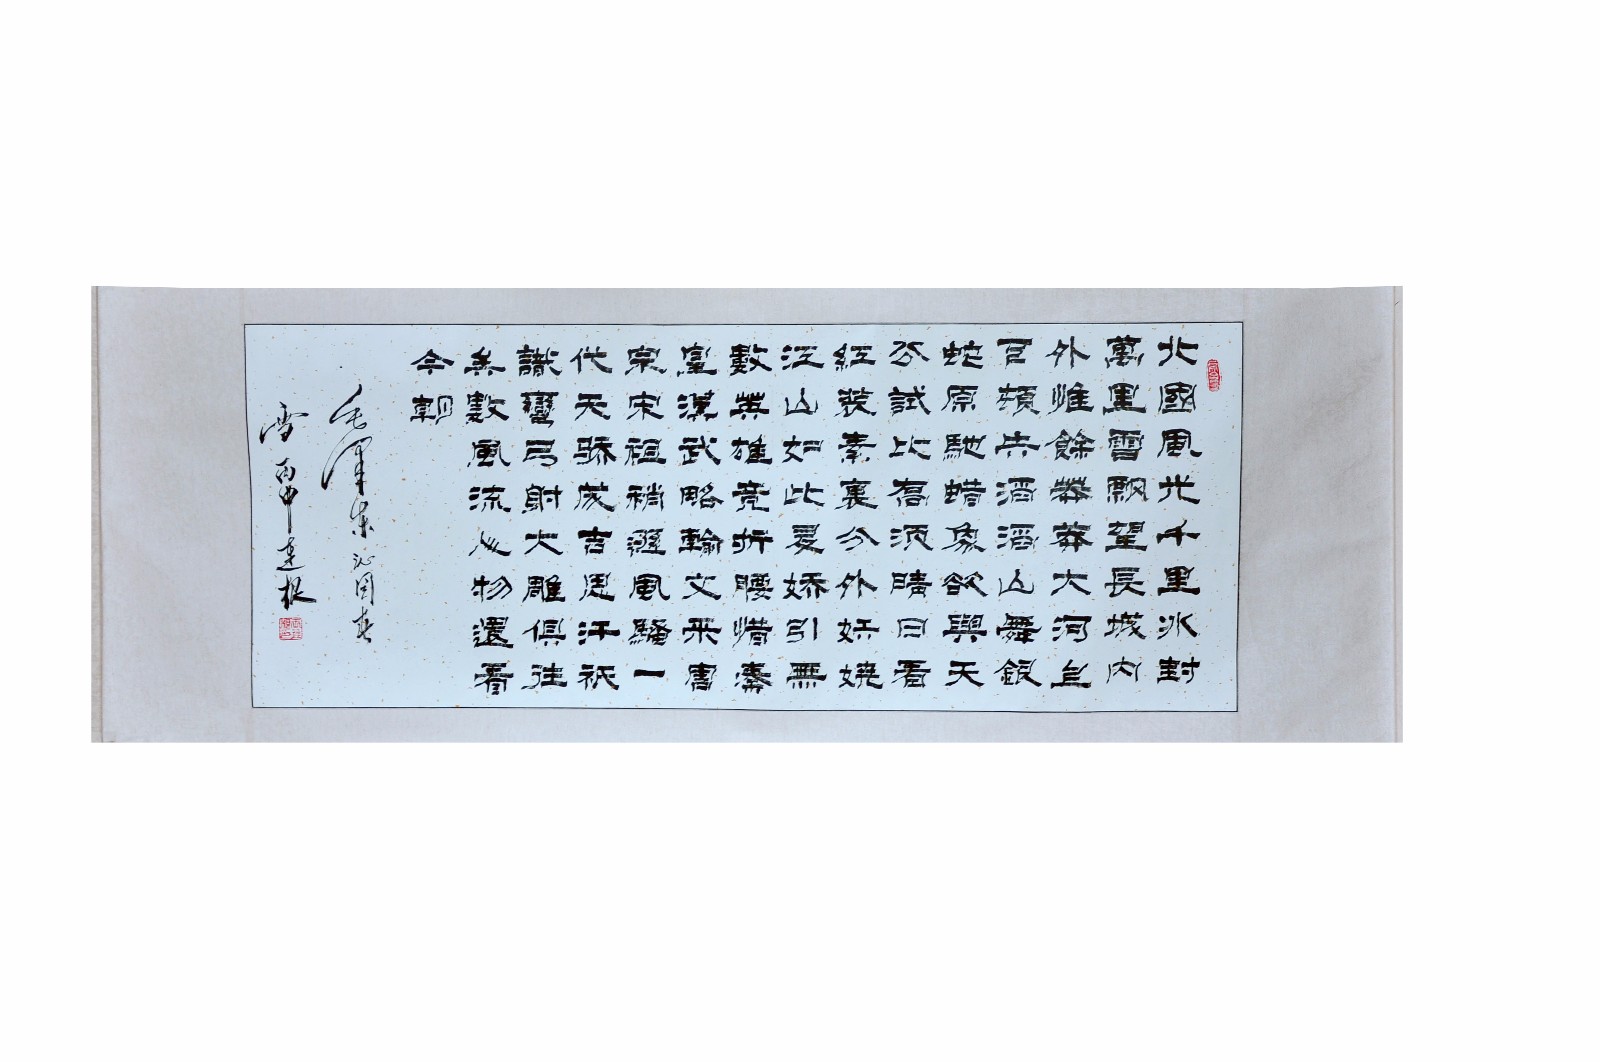 北國風光千里冰封
萬里雪飄望長城内
外惟餘莽莽大河上
下頓失滔滔山舞銀
蛇原馳蜡象欲與天
公試比高須晴日看
紅裝素裹分外妖嬈
江山如此多嬌引無
數英雄竞折腰惜秦
皇漢武略輸文采唐
宗宋祖稍遜風騷一
代天骄成吉思汗祇
識彎弓射大雕俱往
矣數風流人物還看
今朝
毛澤东沁园春
雪丙申達根